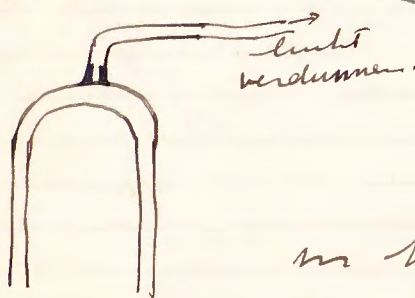 lucht
verdunnen.